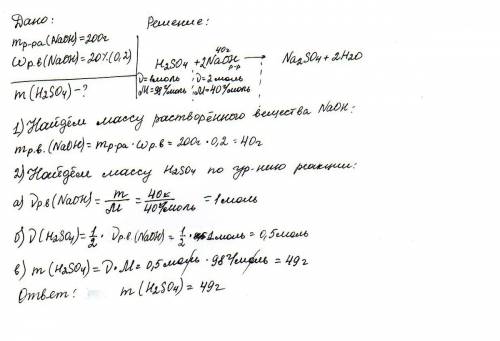 Дано:
Решение:
mр-ра(NaOH)=200г
ωр.в(NaOH)=20%(0,2)
m(H2SO4)-?
40г
H2SO4 + 2NaOH → Na2SO4 + 2H2O
р-р
ν=1моль ν=2моль
M=98г/моль M=40г/моль
1) Найдём массу растворённого вещества NaOH:
mр.в.(NaOH)=mр-ра·ωр.в=200г·0,2=40г
2) Найдём массу H2SO4 по ур-нию реакции:
а) νр.в(NaOH)=m/M=40г/40г/моль=1моль
б) ν(H2SO4)=1/2·νр.в(NaOH)=1/2·1моль=0,5моль
в) m(H2SO4)=ν·M=0,5моль·98г/моль=49г
Ответ: m(H2SO4)=49г